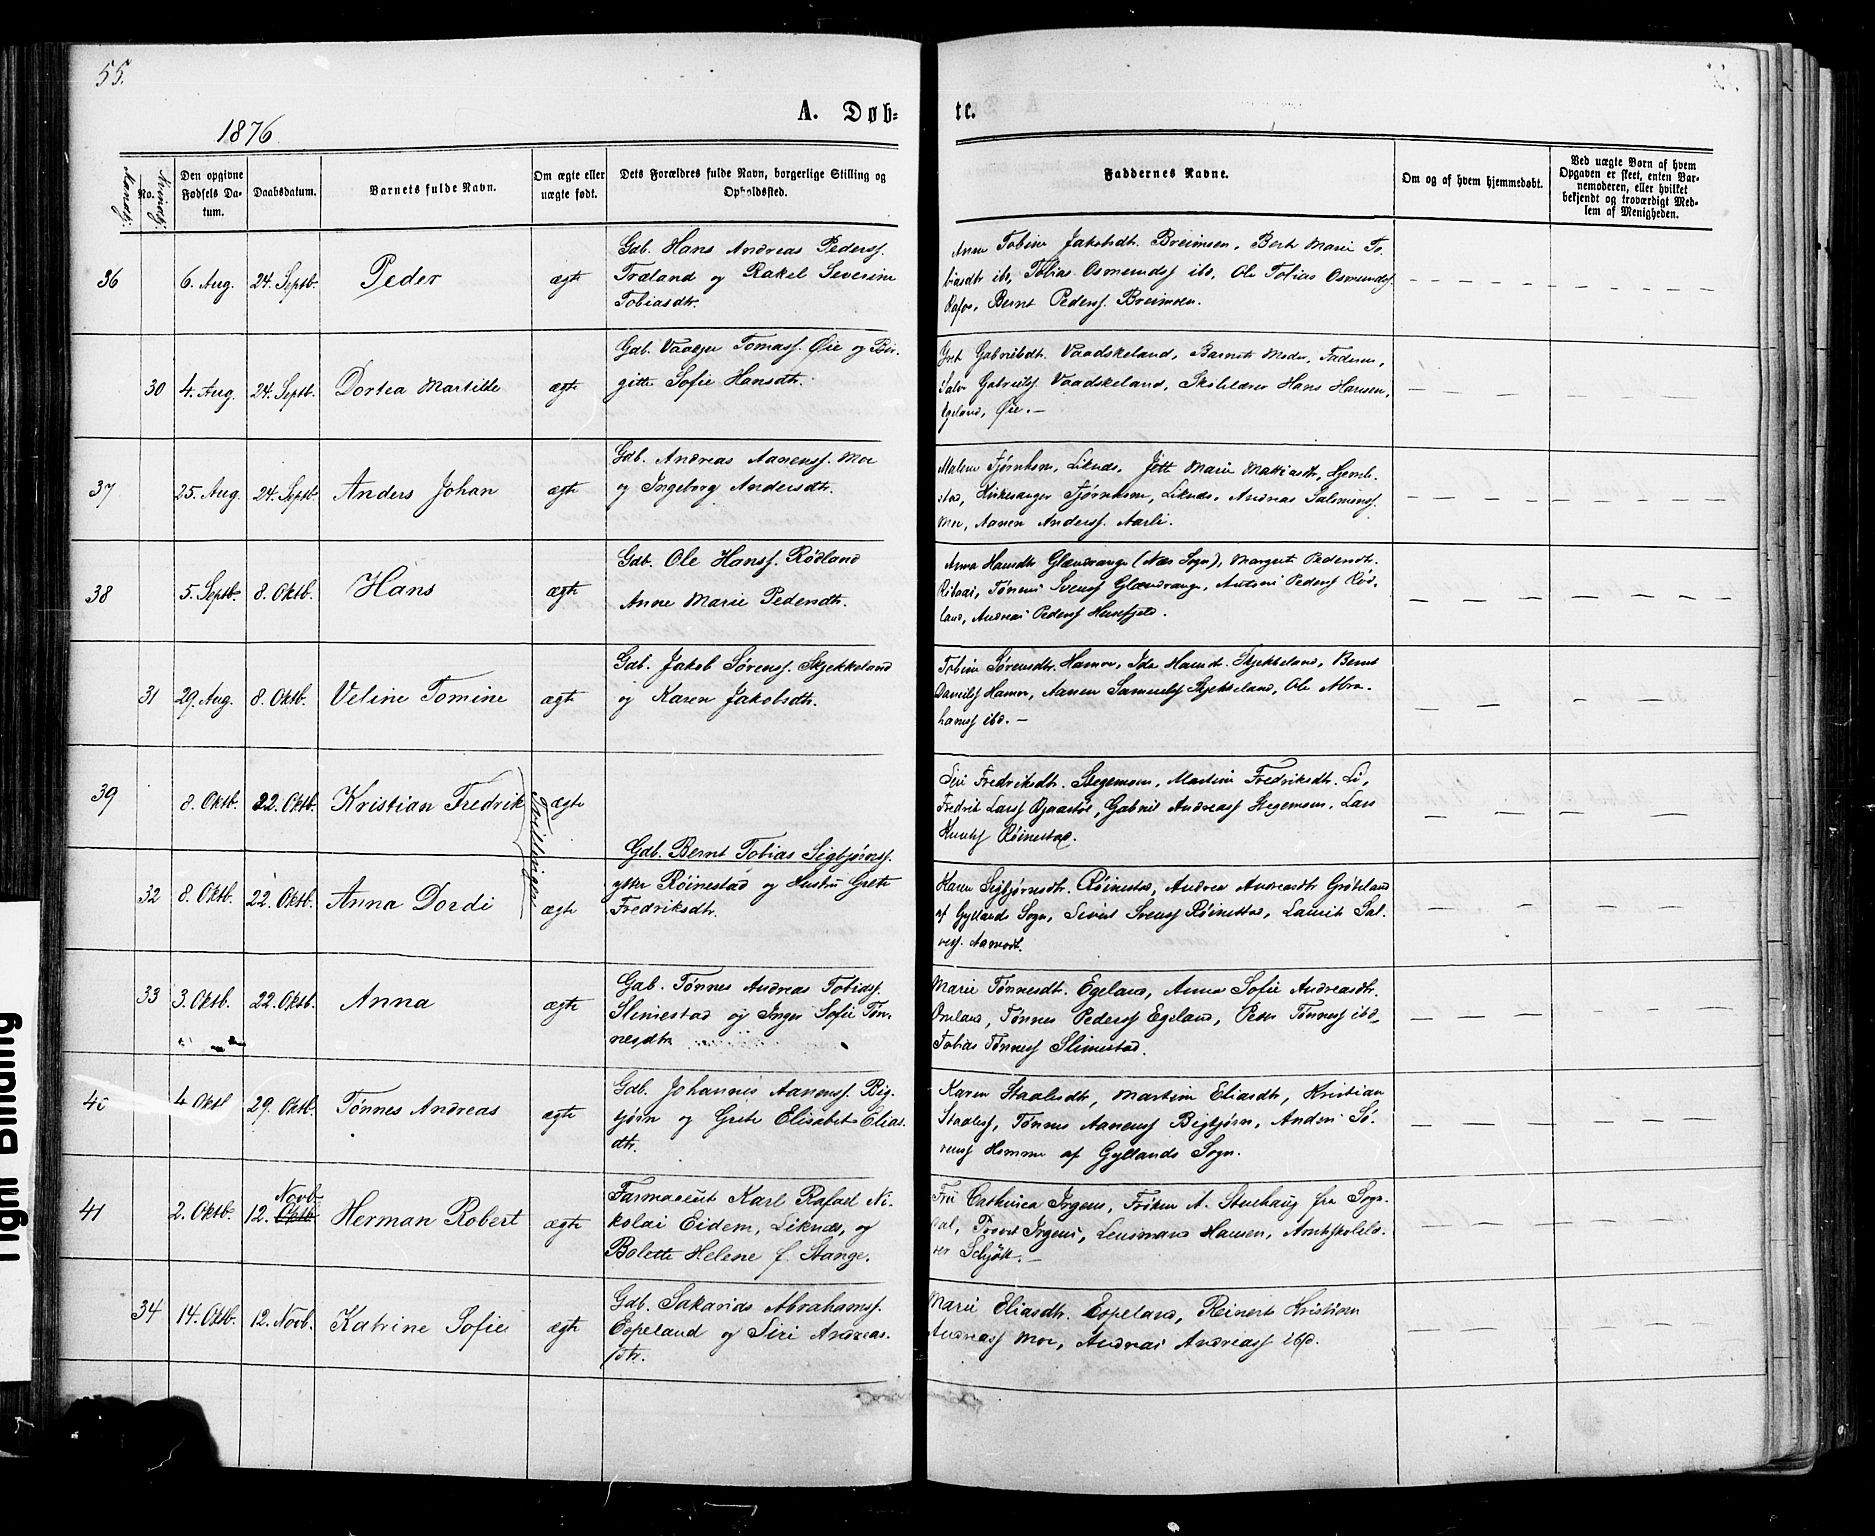 55.
A. Døb=
te.
1876
Mandkj:
No.
Kvindkj:
Den opgivne Fødsels Da-
tum.
Daabsdatum.
Barnets fulde Navn.
Om ægte eller
uægte født.
Dets Forældres fulde Navn, borgerlige Stilling og
Opholdssted.
Faddernes Navne.
Om og af hvem hjemmedøbt.
Ved uægte Børn af hvem
Opgaven er skeet, enten Bar-
nemoderen, eller hvilket
bekjendt og troværdigt Med-
lem af Menigheden.
36 6. Aug. 24. Septb. Peder ægte
Gdb. Hans Andreas Pederss.
Træland og Rakel Severine
Tobiasdtr.
Anne Tobine Jakobsdt. Breimoen, Bert Marie To-
biasdtr ibd, Tobias Osmunds ibd, Ole Tobias Osmundss.
Rafos, Bernt Pederss. Breimoen.
30 4. Aug. 24. Septb. Dortea Martille ægte
Gdb. Vaager Tomass. Øie og Bir-
gitte Sofie Hansdtr.
Gabrielsdt. Vaadskeland, Barnets Moder, Faderen,
Salve Gabriels Vaadskeland, Skolelærer Hans Hansen,
Egeland, Øie.—
37 25. Aug. 24. Septb. Anders Johan ægte
Gdb. Andreas Aanenss. Moe
og Ingeborg Andersdtr.
Malene Fjørnhom, Liknes, Marie Mattiasdt,
Kirkesanger Fjørnhom, Liknes, Andreas Salomons
Moe, Aanen Anderss. Aarli.
38 5. Septb. 8. Oktb. Hans ægte
Gdb. Ole Hanss. Rødland
Anne Marie Pedersdtr.
Anna Hansdt. Glændrange (Næs Sogn), Margert Pedersdt.
Tønnes Svenss Glændrange, Antoni Pederss Rød-
land, Andreas Pederss
31 29. Aug. 8. Oktb. Veline Tomine ægte
Gdb. Jakob Sørenss. Skjekkeland
og Karen Jakobsdtr.
Tobine Sørensdtr. Hamre, Ida Hansdt. Skjekkeland, Bernt
Daniels Hamre, Aanen Samuelss Skjekkeland, Ole Abra-
hamss ibd.—
39 8. Oktb. 22. Oktb. Kristian Fredrik ægte
Tvillinger
Siri Fredriksdt. Stegemoen, Martine Fredriksdt. Li,
Fredrik Larss Gabriel Andreass Stegemoen, Lars
Røinestad.
Gdb. Bernt Tobias Sigbjørnss.
ytre Røinestad og Hustru Grete
Fredriksdtr.
32 8. Oktb. 22. Oktb. Anna Dordi ægte
Karen Sigbjørnsdtr. Røinestad, Andrea Andreasdt Grøteland
af Gyllands Sogn, Sivert Svenss Røinestad, Laurits Sal-
vess. Aamodt.
33 3. Oktb. 22. Oktb. Anna ægte
Gdb. Tønnes Andreas Tobiass.
Slimestad og Inger Sofie Tøn-
nesdtr.
Marie Tønnesdt. Egeland, Anna Sofie Andreasdt.
Omland, Tønnes Pederss Egeland, Peder Tønness ibd,
Tobias Tønness Slimestad.
40 4 Oktb 29. Oktb. Tønnes Andreas ægte
Gdb. Johannes Aanenss. Big-
tjørn og Grete Elisabet Elias-
dtr.
Karen Staalesdt, Martine Eliasdt, Kristian
Staaless, Tønnes Aanenss Bigtjørn, Anders Sø-
renss Homme af Gyllands Sogn.
41 2. Oktb. 12. Oktb. Novb. Herman Robert ægte
Farmaceut Karl Rafael Ni-
kolai Eidem, Liknæs, og
Bolette Helene f. Stange.
Fru Cathinca Irgens, Frøken A. Stuehaug fra Sogn-
dal, Provst Irgens, Lensmand Hansen, Amtsskolelæ-
rer Schjøtt.—
34 14. Oktb. 12. Novb. Katrine Sofie ægte
Gdb. Sakarias Abrahamss.
Espeland og Siri Andreas-
dtr.
Marie Eliasdt. Espeland, Reinert Kristian
Andreass Moe, Andreas Andreass ibd.
Tight Binding